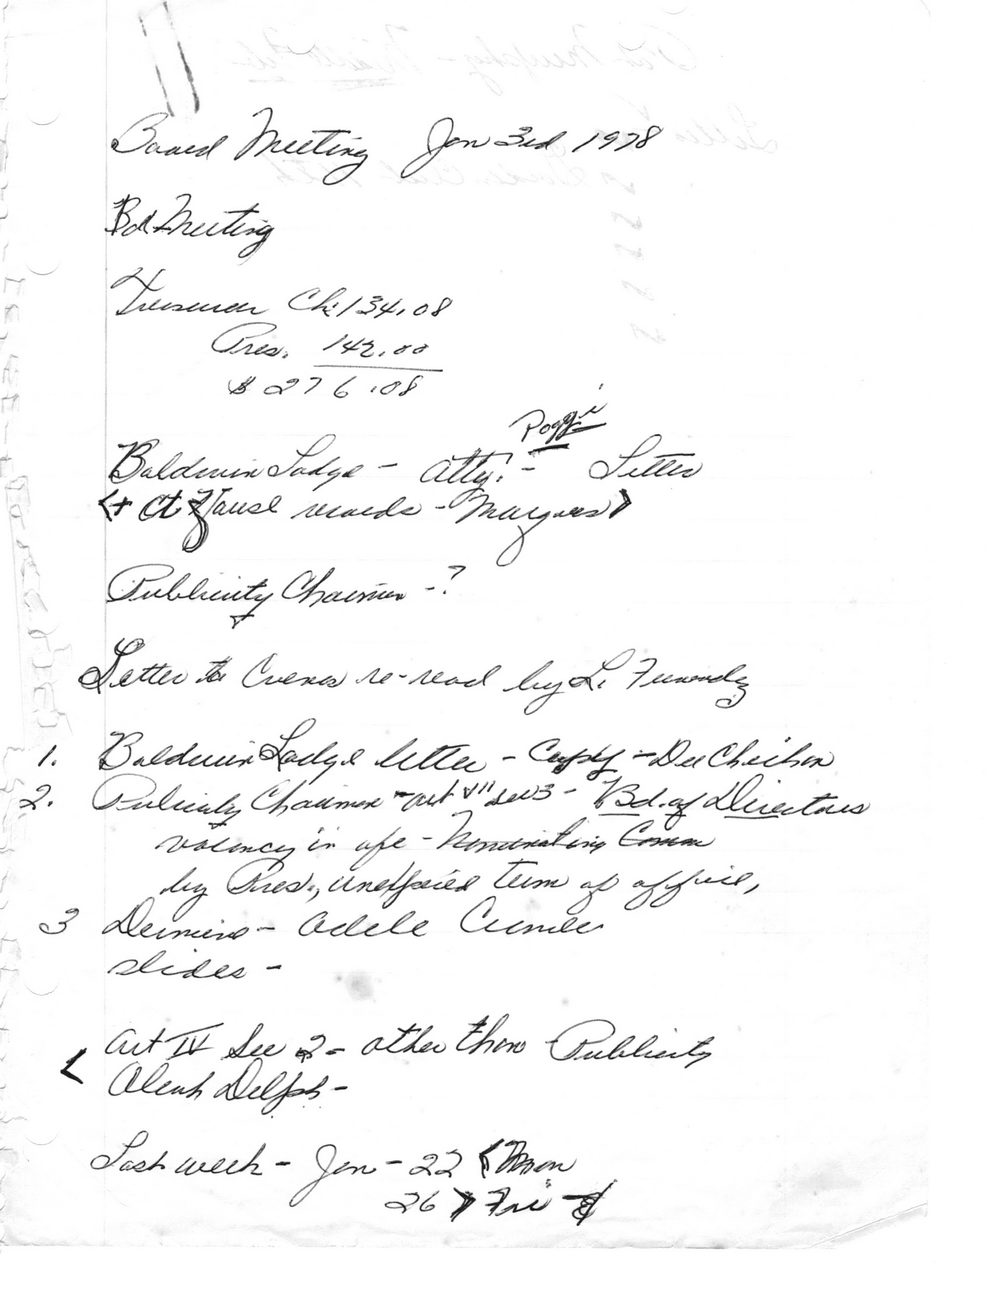 Board Meeting Jan 3rd 1978
Bd Meeting
Treasurer Ch. 134.08
Pres. 142.00
$ 276.08
Poggi
Baldwin Lodge - Atty. - Letter
<+ Ct House records - >
Publicity Chairman - ?
Letter to re-read by L. Fernandez
1. Baldwin Lodge letter - Copy - Dee
2. Publicity Chairman - Art VII Sec 3 - Bd. of Directors
vacancy in ofc - Nominating Comm
by Pres., unexpired term of office,
3 - Adele
slides -
Art IV Sec 2 - other than Publicity
< Delph -
Last week - Jan - 22 (Mon
26 ) Fri -